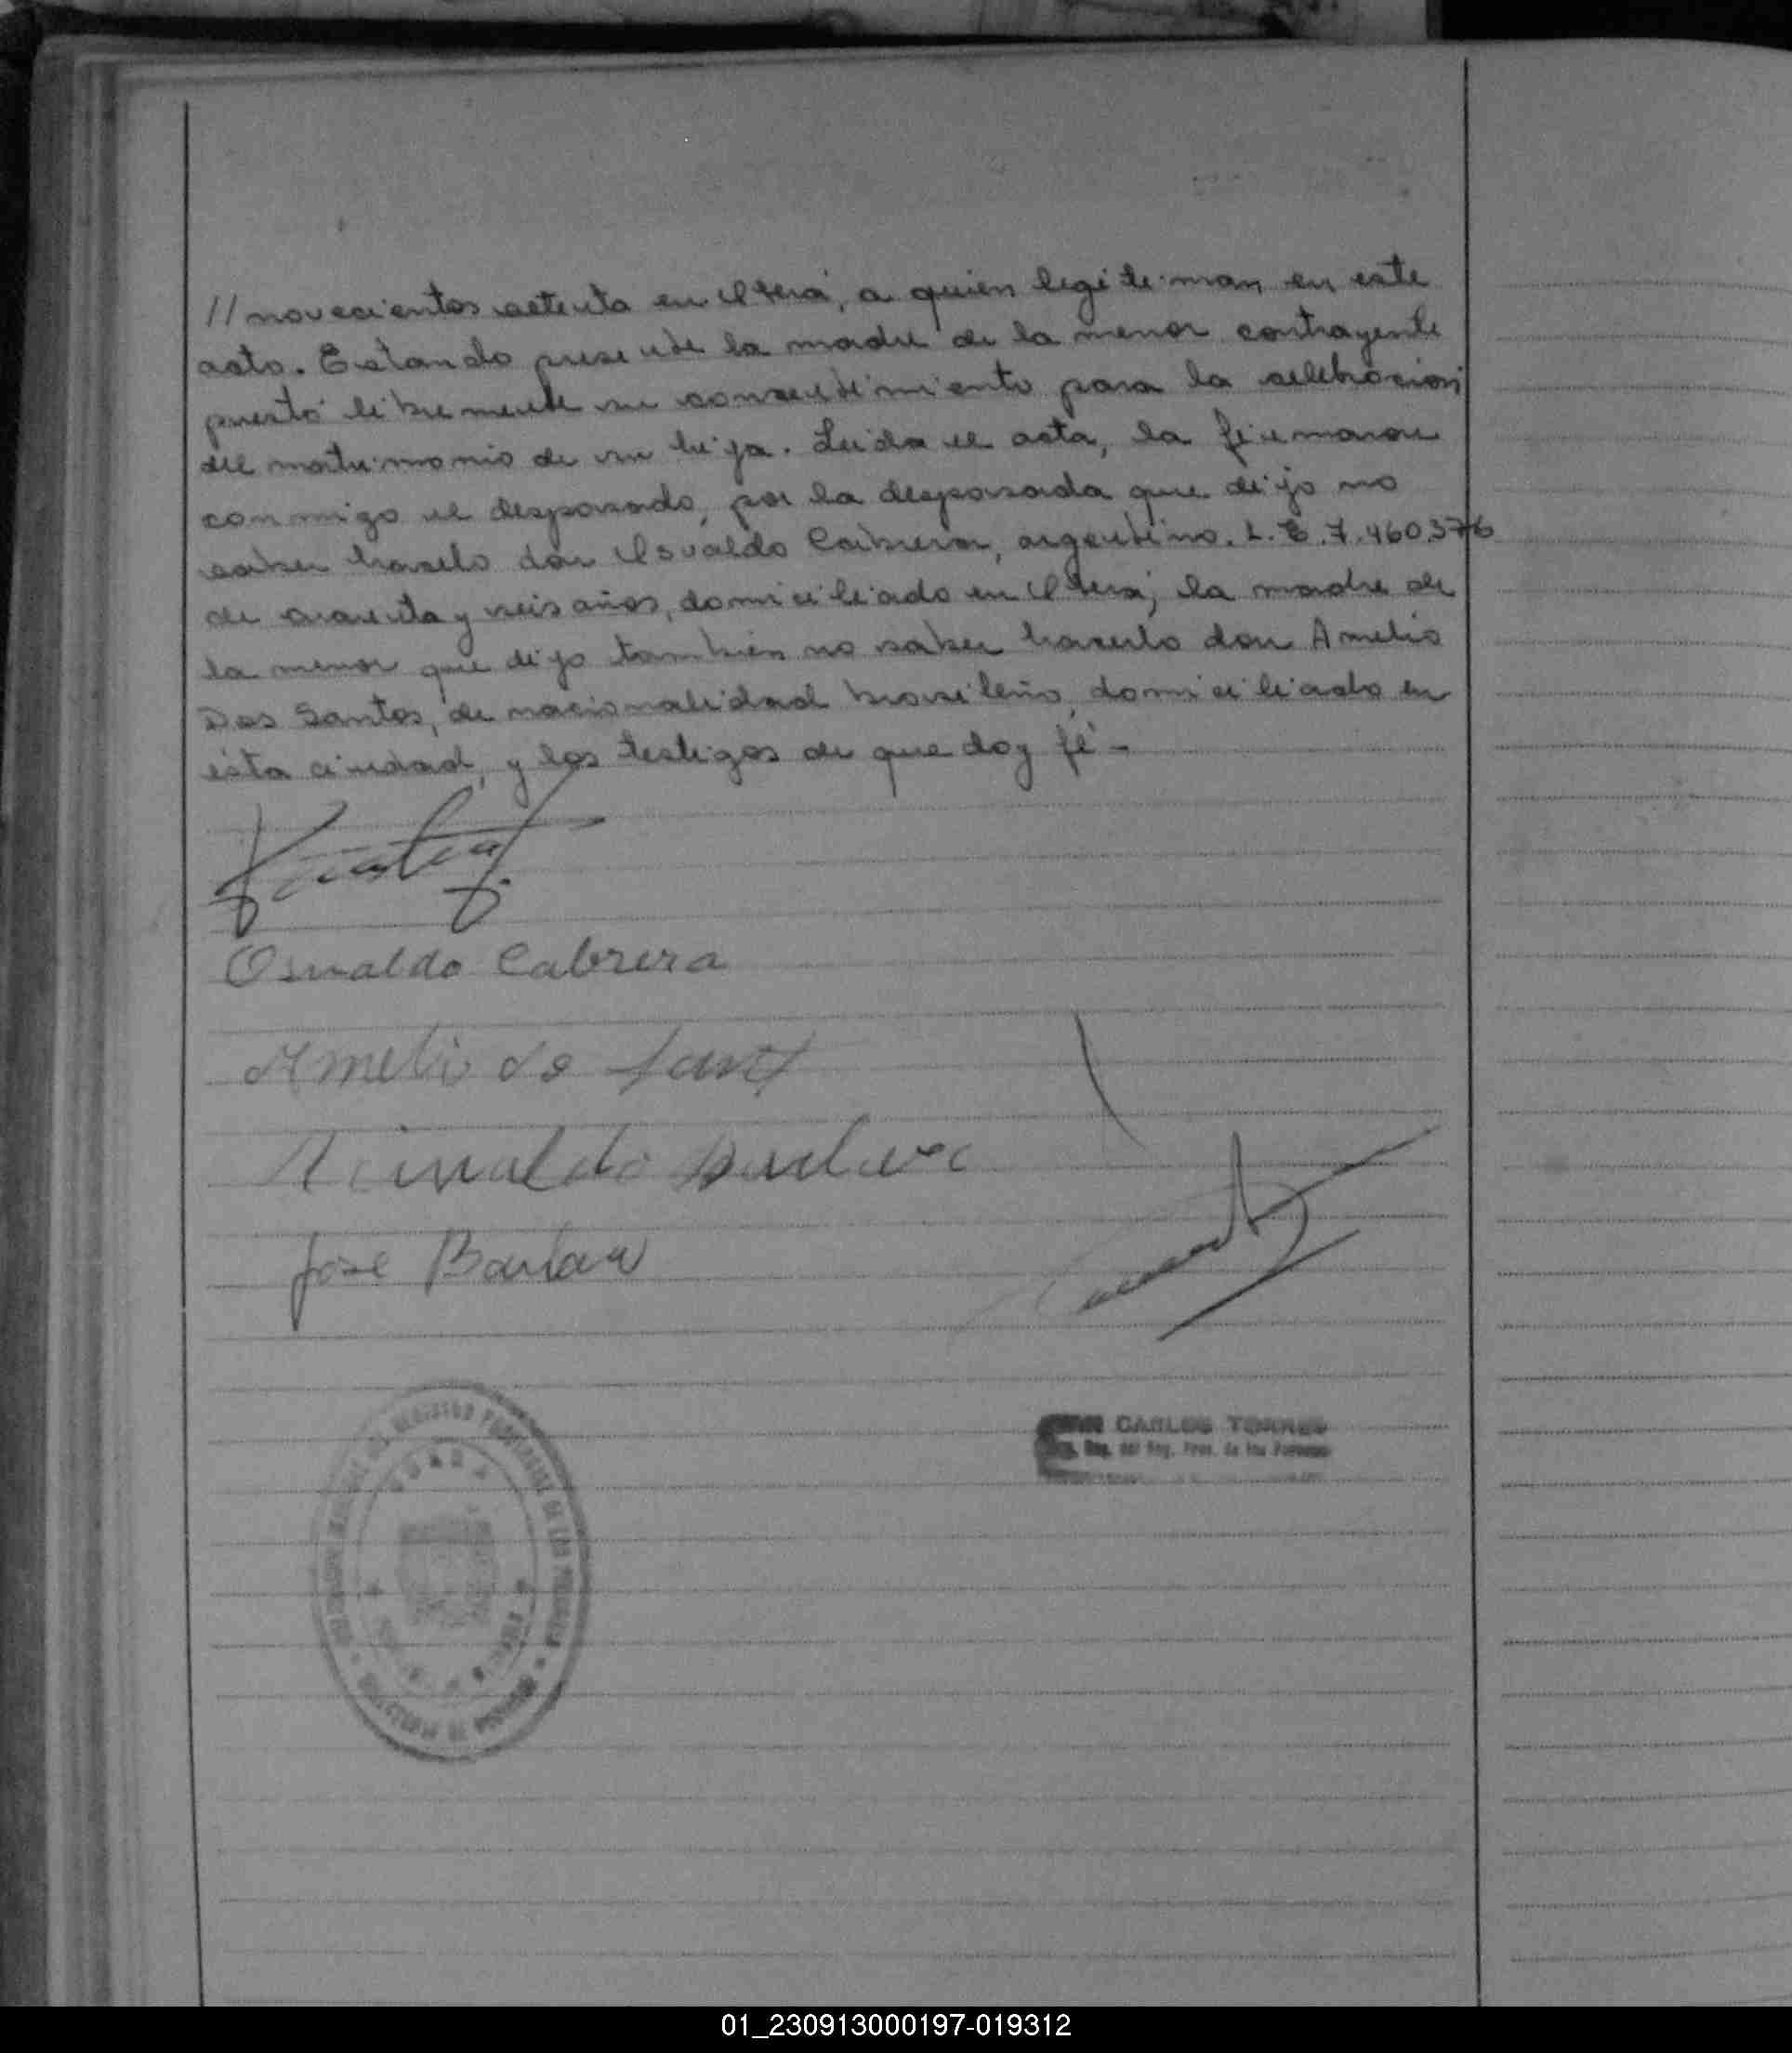 // novecientos setenta en Oberá, a quien legitiman en este
acto. Estando presente la madre de la menor contrayente
prestó libremente su consentimiento para la celebración
del matrimonio de su hija. Leída el acta, la firmaron
conmigo el desposado, por la desposada que dijo no
saber hacerlo don Osvaldo Cabrera, argentino. L.E. 7.460.376
de cuarenta y seis años, domiciliado en Oberá; la madre de
la menor que dijo también no saber hacerlo don Amelio
Dos Santos, de nacionalidad brasileño, domiciliado en
ésta ciudad, y los testigos de que doy fé -
Osvaldo Cabrera
Amelio do
Reinaldo
José
CARLOS TORRES
Reg. Prov. de las Personas
REGISTRO PROVINCIAL DE LAS PERSONAS
01_230913000197-019312